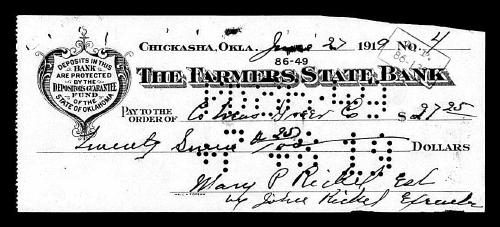 CHICKASHA, OKLA. June 27 1919 No. 4
86-49
DEPOSITS IN THIS
BANK
ARE PROTECTED
BY THE
DEPOSITORS GUARANTEE
FUND
OF THE
STATE OF OKLAHOMA
THE FARMERS STATE BANK
PAY TO THE
ORDER OF $27 25
Twenty Seven & 25/100 DOLLARS
Mary P Rickel Est
by John Rickel